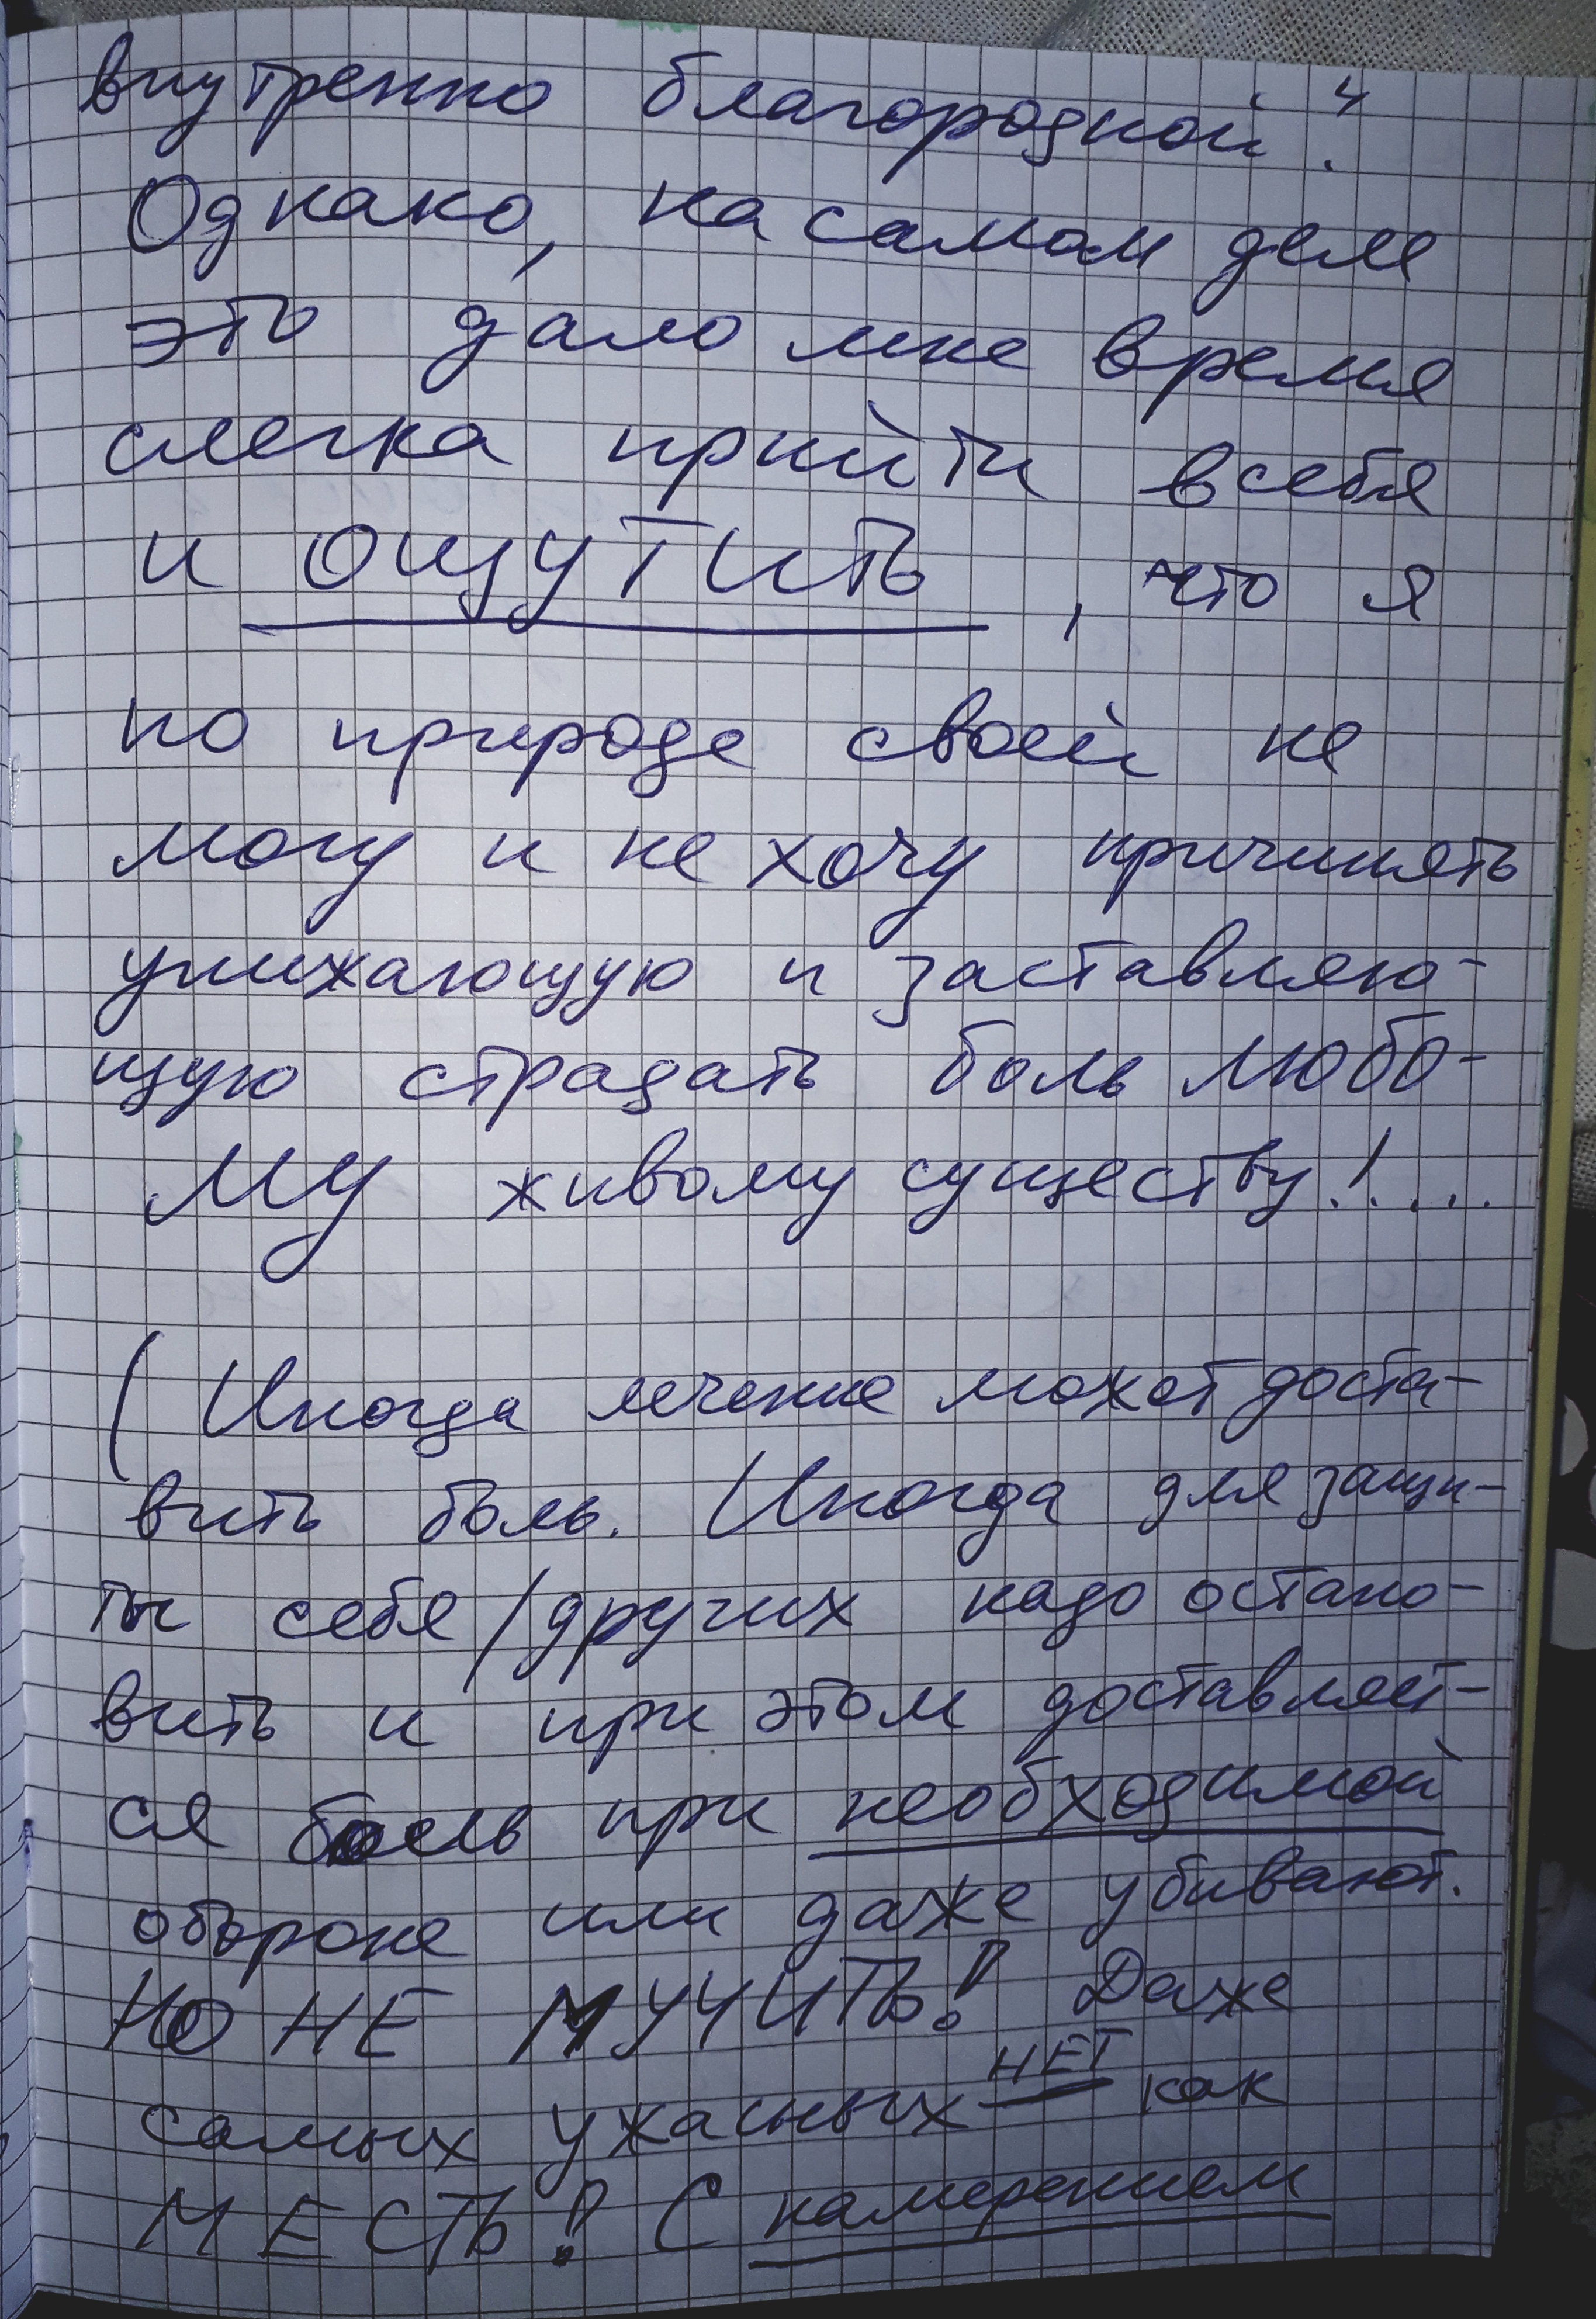 внутренно благородной". 
Однако, на самом деле
это дало мне время
слегка прийти в себя
и ОЩУТИТЬ, что я
по природе своей не
могу и не хочу причинять
унижающую и заставляю-
щую страдать боль любо-
МУ живому существу!....
(Иногда лечение может доста-
вить боль. Иногда для защи-
ты себя/других надо остано-
вить и при этом доставляет-
ся боль при необходимой
обороне или даже убивают.
НО НЕ МУЧИТЬ! Даже
самых ужасных НЕТ как
МЕСТЬ! С намерением